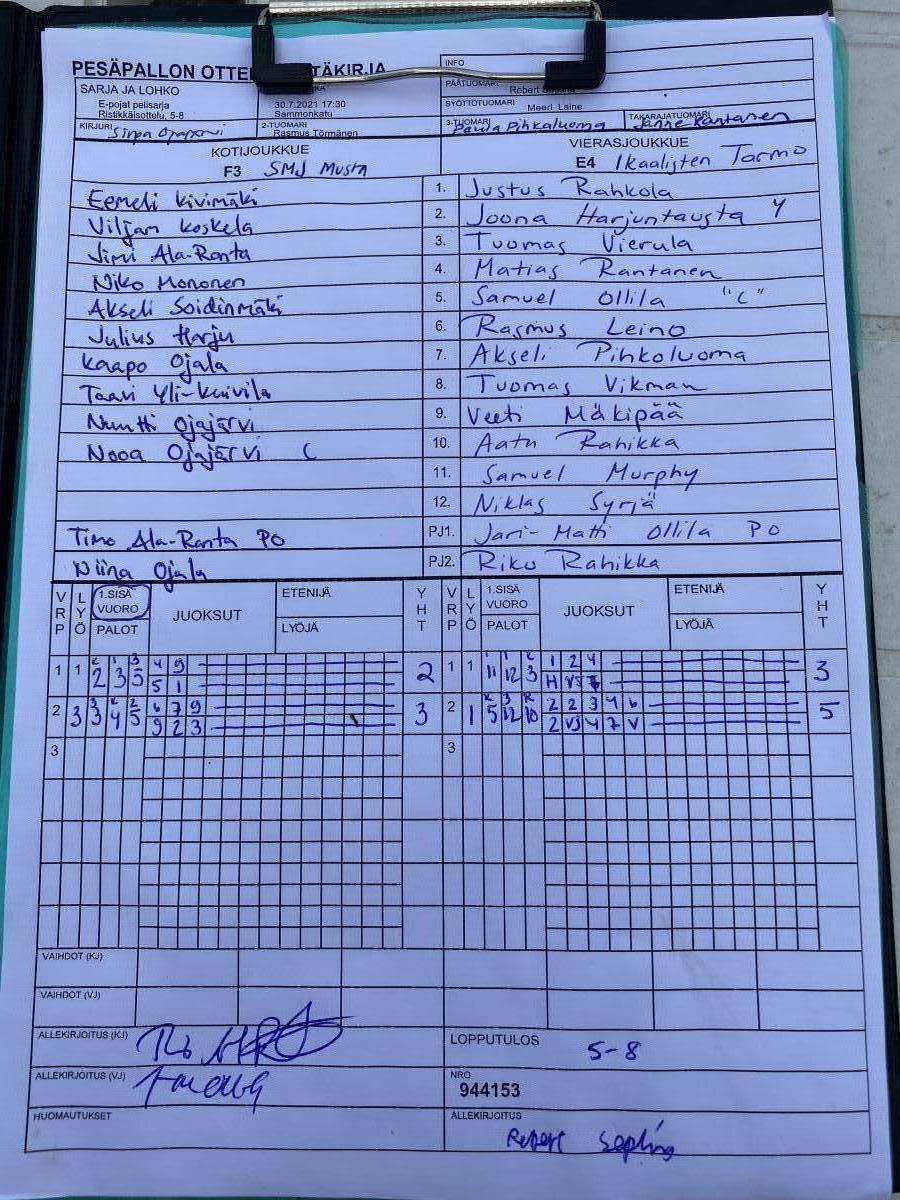 PESÄPALLON OTTE TÄKIRJA
SARJA JA LOHKO
E-pojat pelisarja
Ristikkäisottelu, 5-8
30.7.2021 17:30
Sammonkatu
KIRJURI
2-TUOMARI
Rasmus Törmänen
INFO
PÄÄTUOMARI
Robert
SYÖTTÖTUOMARI
Meeri Laine
3-TUOMARI
Paula Pihkaluoma
TAKARAJATUOMARI
Janne Rantanen
KOTIJOUKKUE
F3 SMJ Musta
VIERASJOUKKUE
E4 Ikaalisten Tarmo
Eemeli Kivimäki 1. Justus Rahkola
Viljam Koskela 2. Joona Harjuntausta Y
Jimi Ala-Ranta 3. Tuomas Vierula
Niko Mononen 4. Matias Rantanen
Akseli Soidinmäki 5. Samuel Ollila "C"
Julius Harju 6. Rasmus Leino
Kaapo Ojala 7. Akseli Pihkoluoma
Taavi Yli-Kuivila 8. Tuomas Vikman
Nuutti Ojajärvi 9. Veeti Mäkipää
Nooa Ojajärvi C 10. Aatu Rahikka
11. Samuel Murphy
12. Niklas Syrjä
Timo Ala-Ranta PO PJ1. Jari-Matti Ollila PO
Niina Ojala PJ2. Riku Rahikka
VRP LYÖ 1.SISÄ VUORO PALOT JUOKSUT ETENIJÄ LYÖJÄ YHT VRP LYÖ 1.SISÄ VUORO PALOT JUOKSUT ETENIJÄ LYÖJÄ YHT
1 1 2 3 5 4 9 2 1 1 11 12 3 1 2 4 3
5 1 H
2 3 3 4 5 6 7 9 3 2 1 5 12 10 2 2 3 4 6 5
9 2 3 2 V3 4 7 V
3 3
VAIHDOT (KJ)
VAIHDOT (VJ)
ALLEKIRJOITUS (KJ)
LOPPUTULOS 5-8
ALLEKIRJOITUS (VJ)
NRO
944153
HUOMAUTUKSET
ALLEKIRJOITUS
Robert